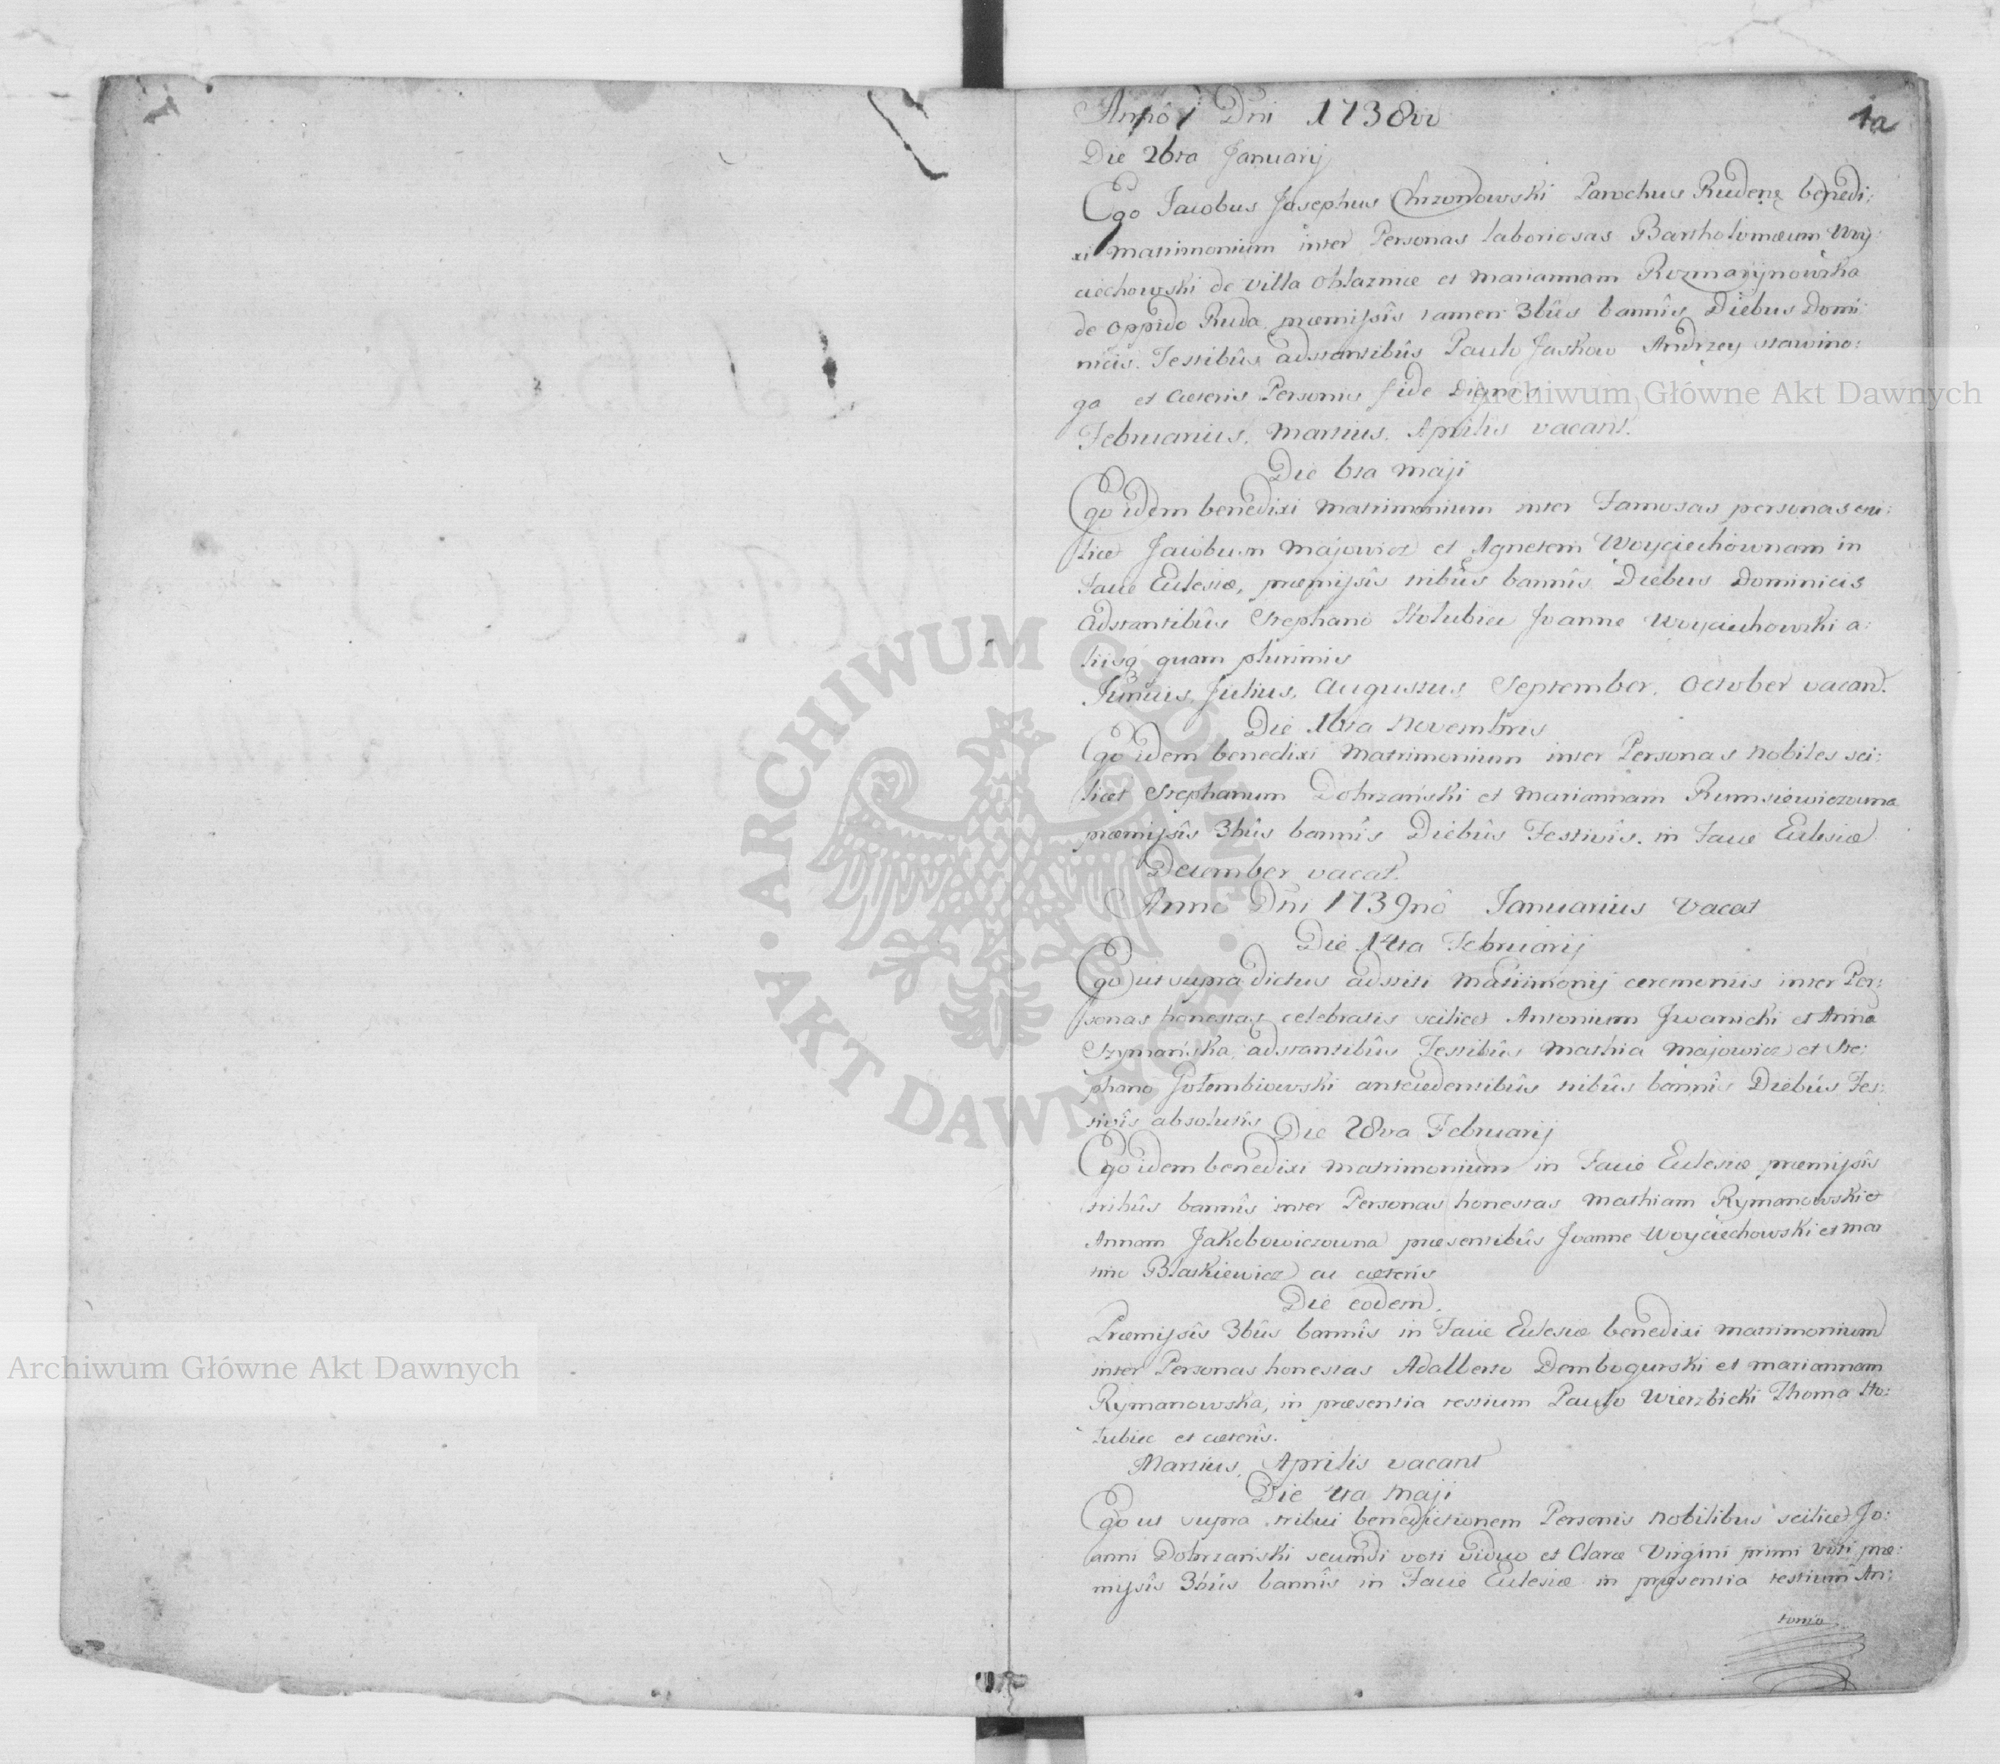 Anno Dni 1738vo
1a
Die 26ta Januarij
Ego Jacobus Josephus Chrzonowski Parochus Rudenę benedi:
xi matrimonium inter Personas laboriosas Bartholomæum Woy:
ciechowski de villa Oblaznice et Mariannam Rozmaryjnowska
de oppido Ruda præmissîs tamen 3bûs bannîs Diebus Domi:
nicis. Testibûs adstantibûs Paulo Jaskow Andrzey stawino:
ga et cæteris Personis fide dignis
Februarius, Martius, Aprilis vacant.
Die 6ta Maji
Ego idem benedixi Matrimonium inter Famosas personas sci:
licet Jacobum Majowicz et Agnetem Woyciechownam in
Facie Eclesiæ, præmissîs tribûs bannîs Diebus Dominicis
Adstantibûs Stephano Holubiec Joanne Woyciechowski a:
liisq quam plurimis
Junius, Julius, Augustus, September, October vacan.
Die 16ta Novembris
Ego idem benedixi Matrimonium inter Personas Nobiles sci:
licet Stephanum Dobrzański et Mariannam Rumsiewiczowna
præmissîs 3bûs bannîs Diebûs Festivîs. in Facie Eclesiæ
December vacat.
Anno Dni 1739nô Januarius vacat
Die 14ta Februarij
Ego ut supra dictus adstiti Matrimonij ceremoniis inter Per:
sonas honestas celebratis scilicet Antonium Jwanicki et Anna
Szymańska, adstantibûs Testibûs Mathia Majowicz et Ste:
phano Gołembiowski antecedentibûs tribûs bannîs Diebûs Fes:
tivîs absolutis
Die 28va Februarij
Ego idem benedixi Matrimonium in Facie Eclesiæ præmissîs
tribûs bannîs inter Personas honestas Mathiam Rymanowski et
Annam Jakubowiczowna præsentibûs Joanne Woyciechowski et Mar
tino Blaskiewicz ac cæterîs
Die eodem.
Præmissîs 3bûs bannîs in Facie Eclesiæ benedixi Matrimonium
inter Personas honestas Adalberto Dembogurski et Mariannam
Rymanowska, in præsentia testium Paulo Wierzbicki Thoma Ho:
lubiec et cæterîs.
Martius, Aprilis vacant
Die 4ta Maji
Ego ut supra tribui benedictionem Personis Nobilibus scilicet Jo:
anni Dobrzański secundi voti viduo et Claræ Virgini primi voti præ:
missîs 3bûs bannîs in Facie Eclesiæ in præsentia testium An:
tonio
Archiwum Główne Akt Dawnych
Archiwum Główne Akt Dawnych
ARCHIWUM GŁÓWNE AKT DAWNYCH